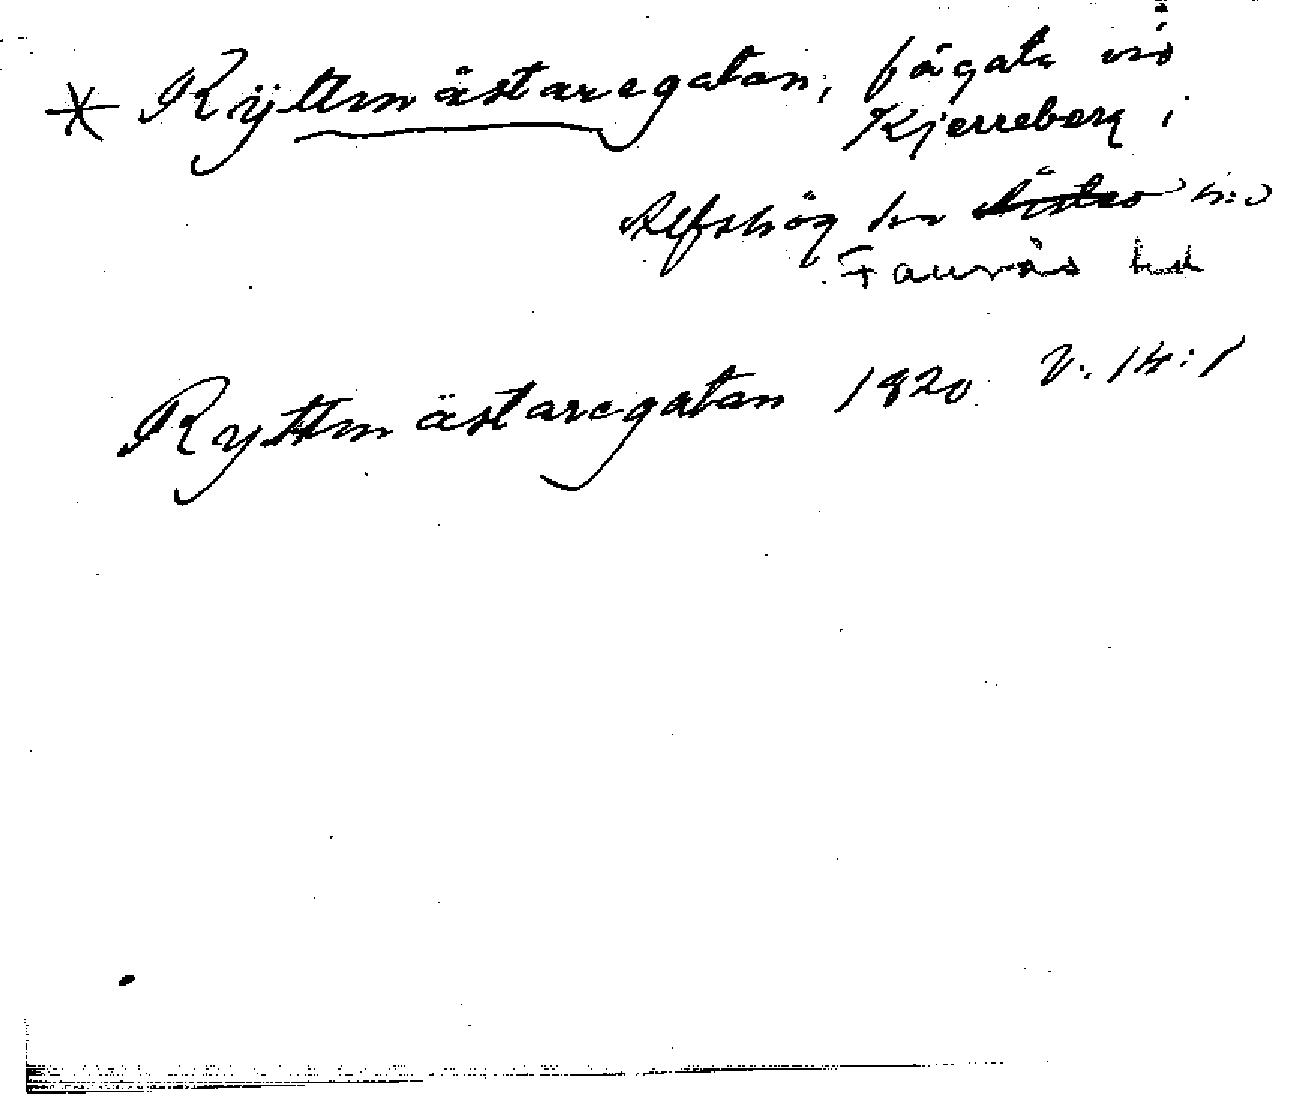 * Ryttmästaregatan, fägata vid
Kjerreberg i
Alfshög sn
Faurås hd
Ryttmästaregatan 1820 V: 14:1